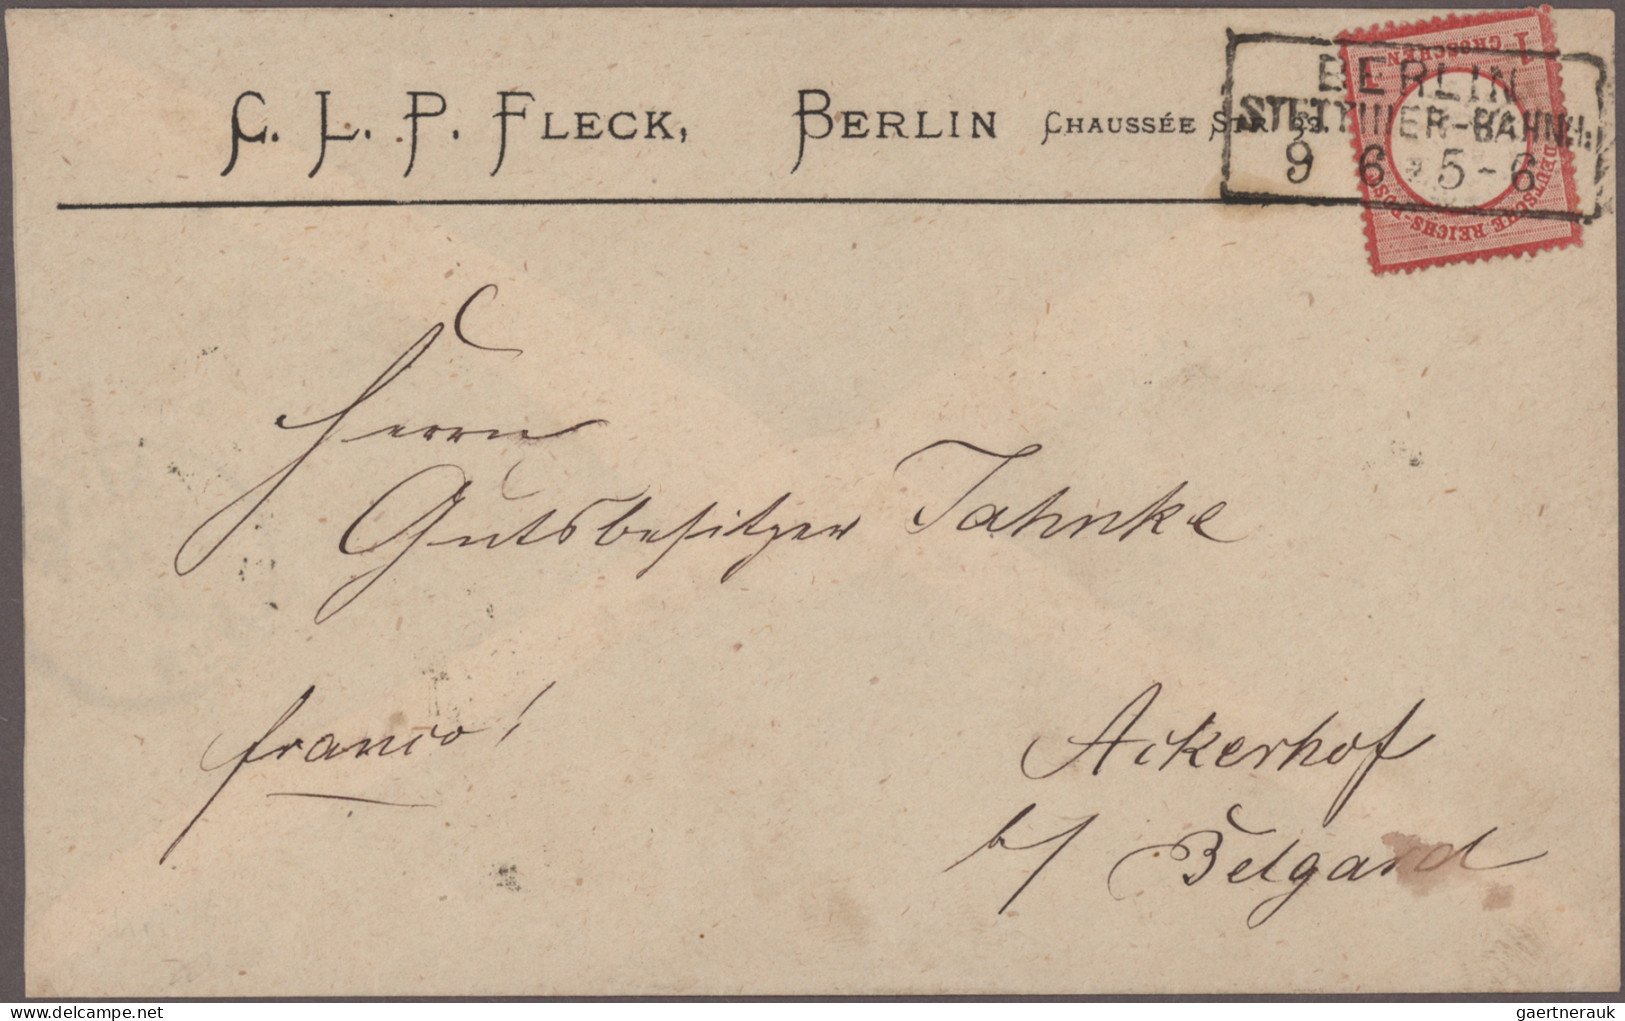 C. L. P. FLECK, BERLIN CHAUSSÉE STR.
1 GROSCHEN 1
DEUTSCHE REICHS-POST
BERLIN
STETTINER-BAHNH.
9 6 5-6
Herrn
Gutsbesitzer Jahnke
franco!
Ackerhof
b/ Belgard
gaertnerauk